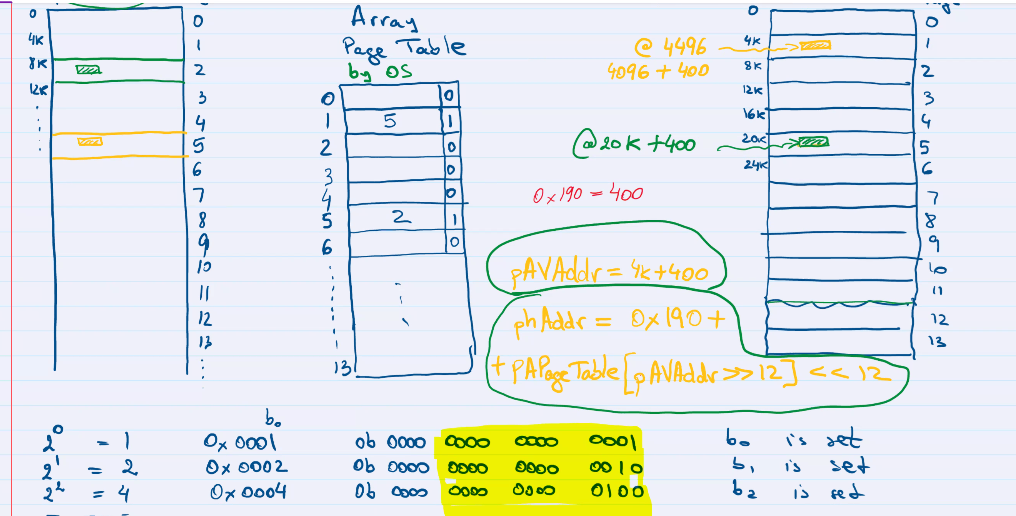 Array
Page Table
by OS
0
4K
8K
12K
0
1
2
3
4
5
6
7
8
9
10
11
12
13
0 0
1 5 1
2 0
3 0
4 0
5 2 1
6 0
13
@ 4496
4096 + 400
@20K +400
0x190 = 400
pAVAddr = 4K+400
phAddr = 0x190 +
+ pAPageTable[pAVAddr >> 12] << 12
0
4K
8K
12K
16K
20K
24K
0
1
2
3
4
5
6
7
8
9
10
11
12
13
b0
2^0 = 1 0x0001 0b 0000 0000 0000 0001 b0 is set
2^1 = 2 0x0002 0b 0000 0000 0000 0010 b1 is set
2^2 = 4 0x0004 0b 0000 0000 0000 0100 b2 is set